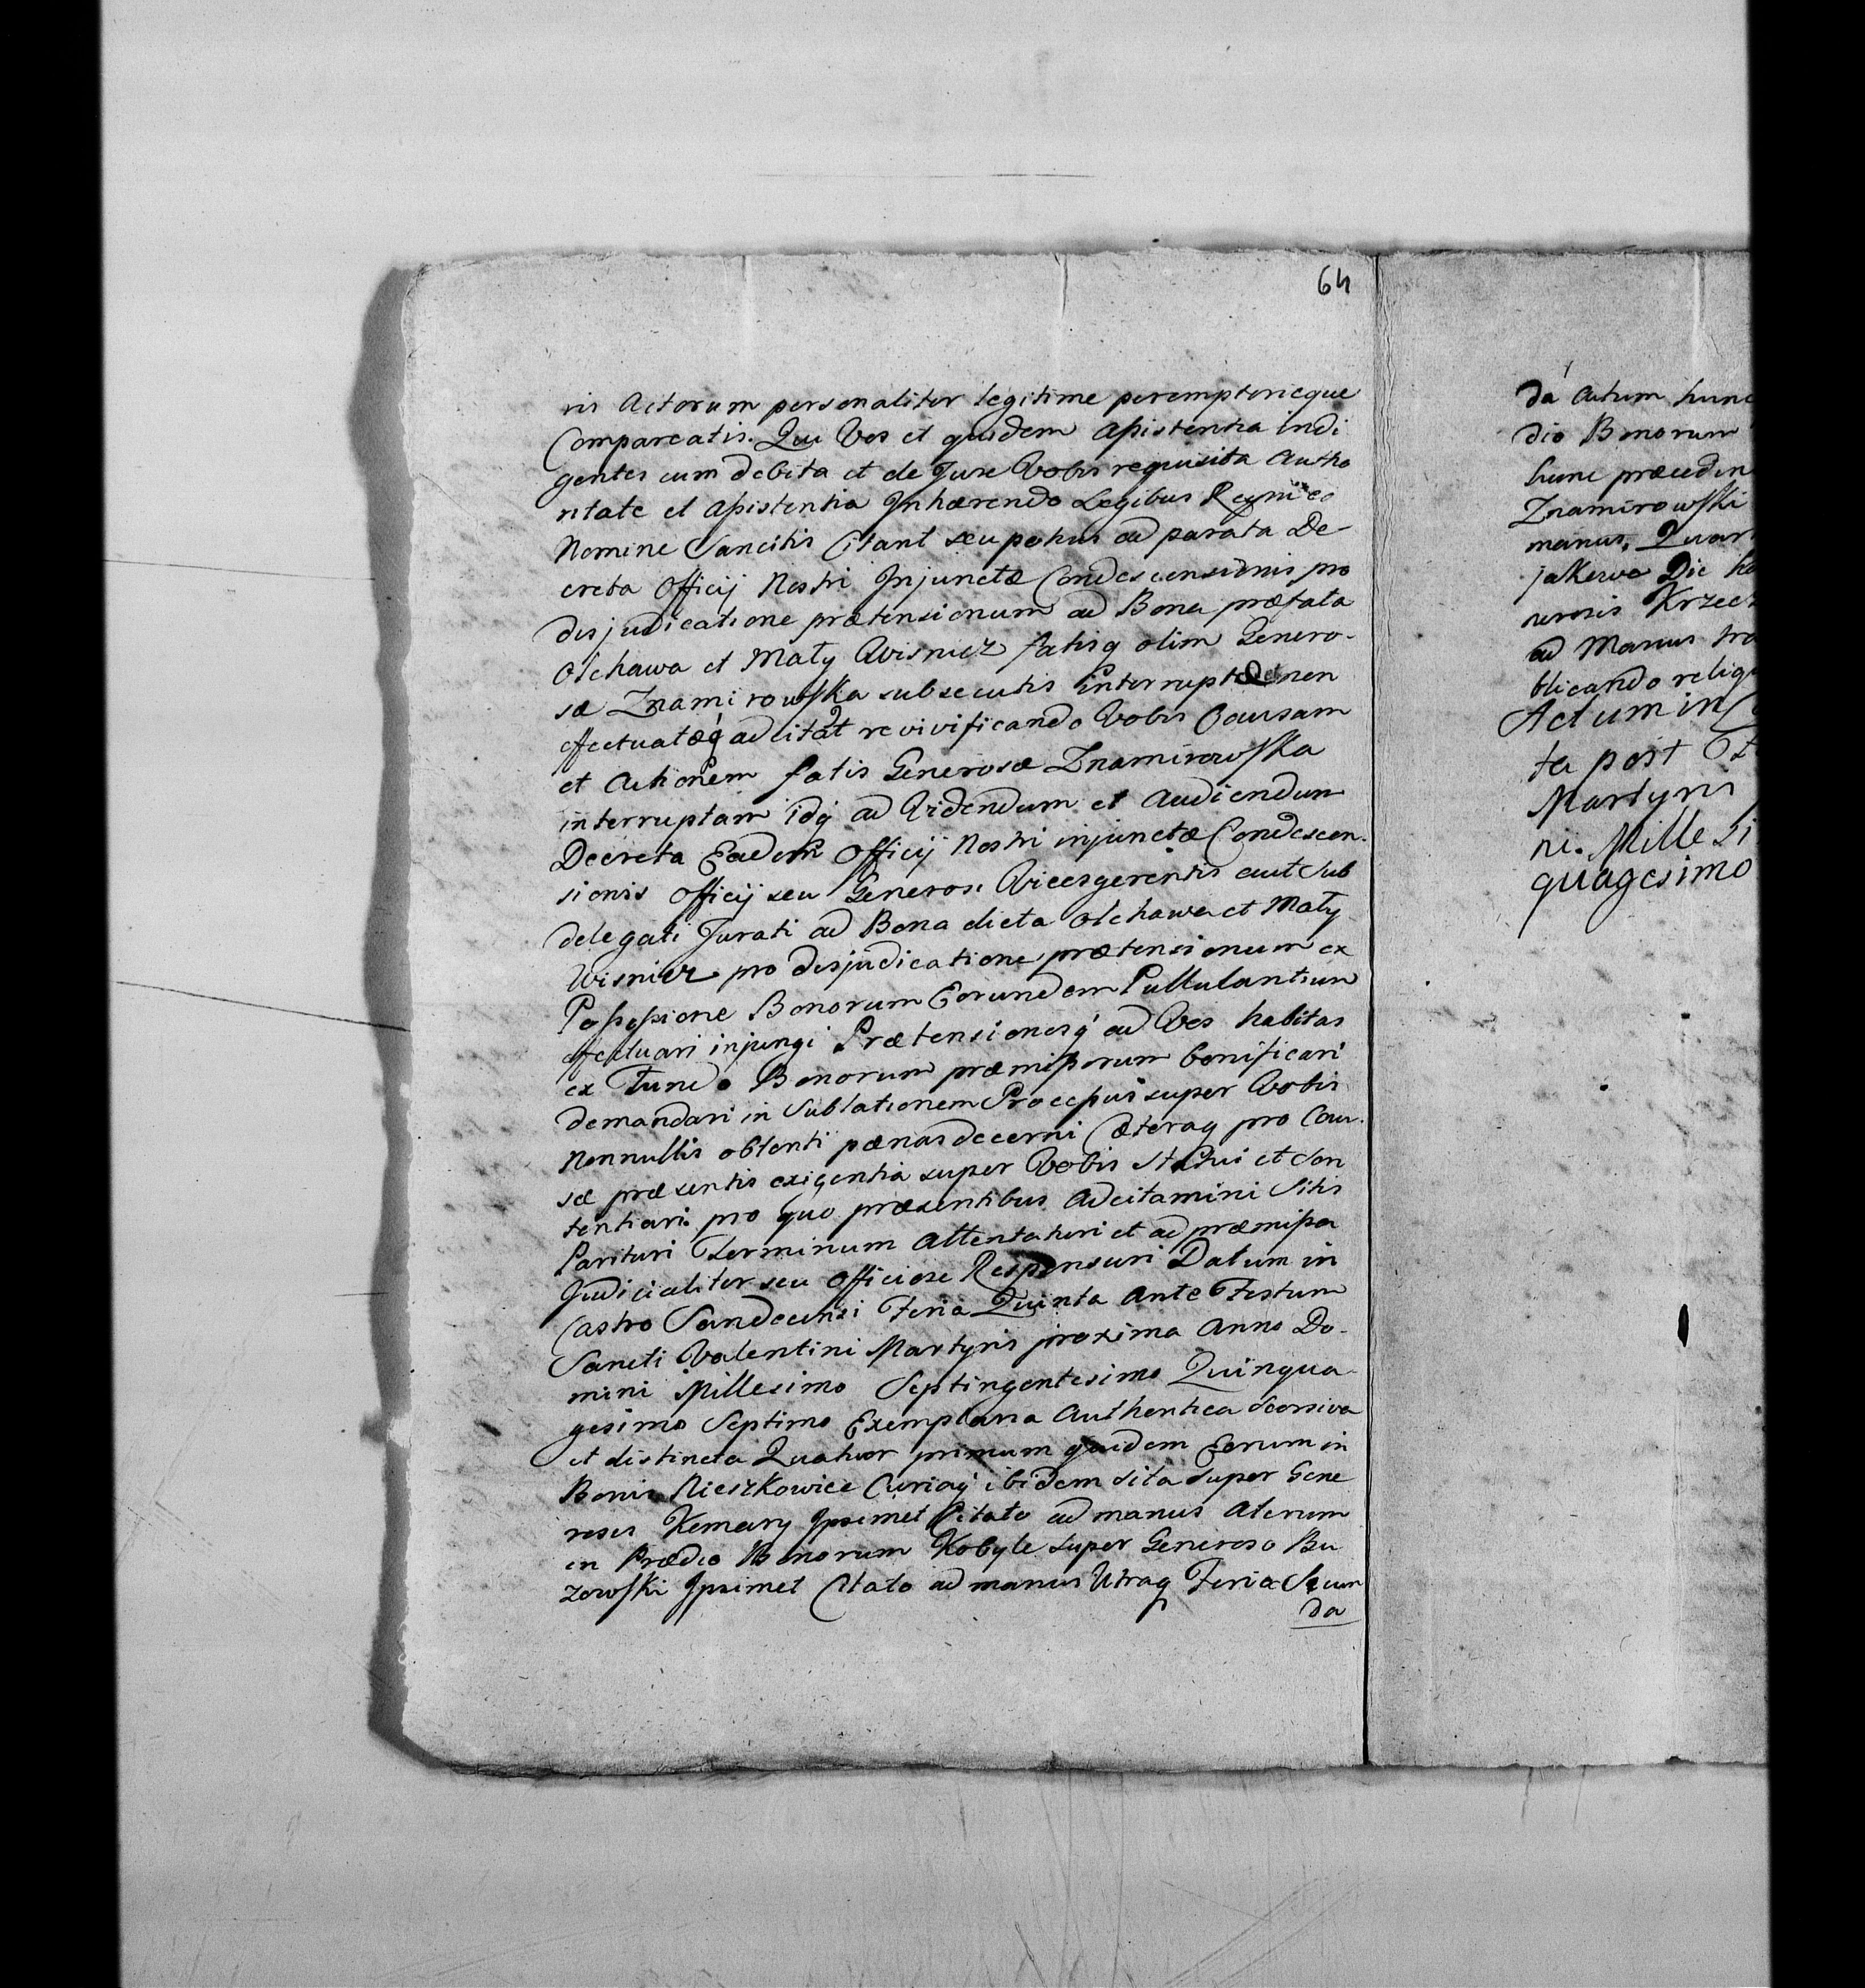 64
ris Actorum personaliter legitime peremptorieque
Compareatis. Qui Vos et quidem Assistentia indi
gentes cum debita et de Jure Vobis requisita Autho
ritate et Assistentia Inhærendo Legibus Regni eo
Nomine Sancitis Citant seu potius ad parata De-
creta Officij Nostri Injunctæ Condescensionis pro
disjudicatione prætensionum ad Bona præfata
Olchawa et Mały Wisnicz fatisq olim Genero-
sæ Znamirowska subsecutis interruptæ nen
effectuatæq adcitãt revivificando Vobis Causam
et Actionem fatis Generosæ Znamirowska
interruptam idq ad Videndum et Audiendum
Decreta Eadem Officij Nostri injunctæ Condescen-
sionis Officij seu Generosi Vicesgerentis aut Sub
delegati Jurati ad Bona dicta Olchawa et Mały
Wisnicz pro disjudicatione prætensionum ex
Possessione Bonorum Eorundem Pullulantium
effectuari injungi Prætensionesq ad Vos habitas
ex Fundo Bonorum præmissorum bonificari
demandari in Sublationem Processus super Vobis
Nonnullis obtenti pænas decerni Cæteraq pro Cau-
sæ præsentis exigentia super Vobis Statui et Sen
tentiari pro quo præsentibus Adcitamini Sitis
Parituri Terminum Attentaturi et ad præmissa
Judicialiter seu Officiose Responsuri Datum in
Castro Sandecensi Feria Quinta Ante Festum
Sancti Valentini Martyris proxima Anno Do-
mini Millesimo Septingentesimo Quinqua-
gesimo Septimo Exemplaria Authentica Seorsiva
et distincta Quatuor primum quidem Eorum in
Bonis Nieszkowice Curiaq ibidem sita super Gene
roso Kemary Ipsimet Citato ad manus Alterum
in Prædio Bonorum Kobyle super Generoso Bu
zowski Ipsimet Citato ad manus Utraq Feria Secun
da
da Actum hunc
dio Bonorum
hunc præceden
Znamirowski
manus, Quar
jakowa Die
nerosis Krzecz
ad Manus tra
blicando reliqu
Actum in
ta post
Martyris
ni. Millesi
quagesimo